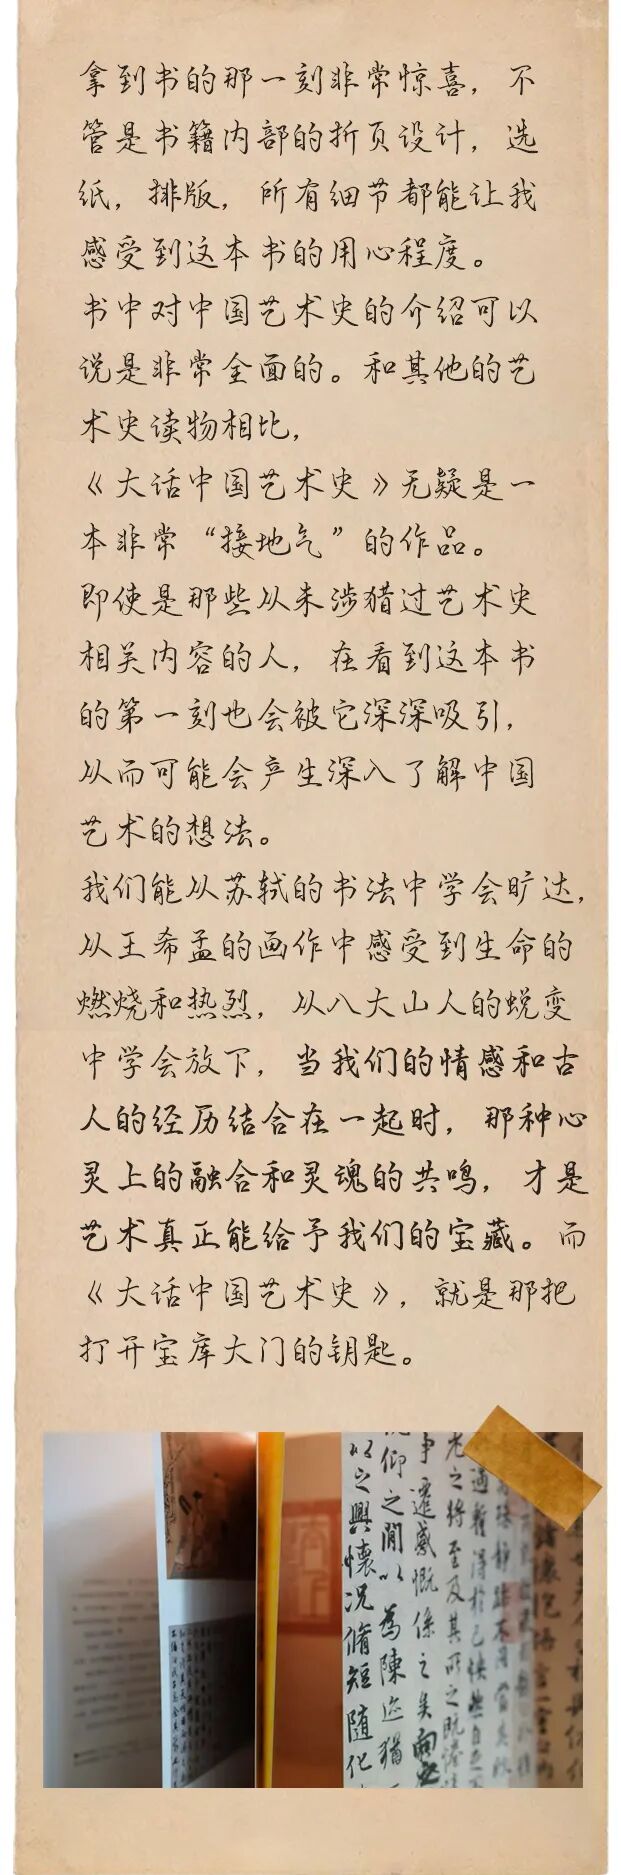 拿到书的那一刻非常惊喜，不
管是书籍内部的折页设计，选
纸，排版，所有细节都能让我
感受到这本书的用心程度。
书中对中国艺术史的介绍可以
说是非常全面的。和其他的艺
术史读物相比，
《大话中国艺术史》无疑是一
本非常“接地气”的作品。
即使是那些从未涉猎过艺术史
相关内容的人，在看到这本书
的第一刻也会被它深深吸引，
从而可能会产生深入了解中国
艺术的想法。
我们能从苏轼的书法中学会旷达，
从王希孟的画作中感受到生命的
燃烧和热烈，从八大山人的蜕变
中学会放下，当我们的情感和古
人的经历结合在一起时，那种心
灵上的融合和灵魂的共鸣，才是
艺术真正能给予我们的宝藏。而
《大话中国艺术史》，就是那把
打开宝库大门的钥匙。
仰之閒以為陳迹猶
以之興懷况脩短随化